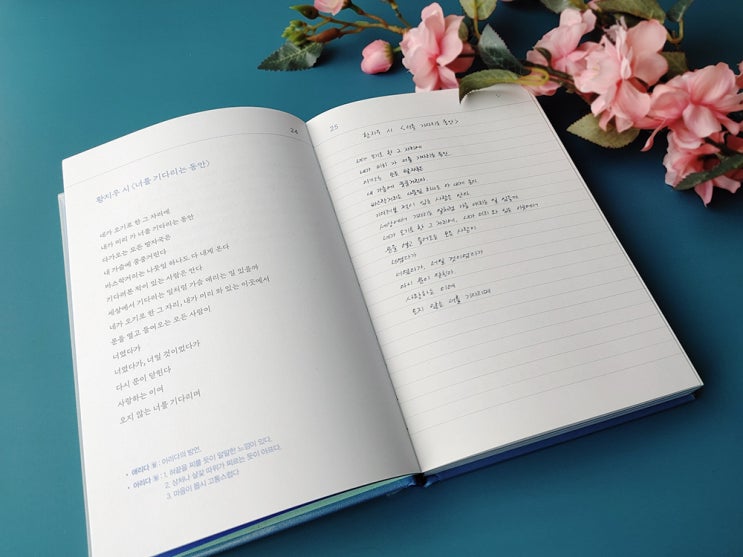 24
황지우 시 〈너를 기다리는 동안〉
내가 오기로 한 그 자리에
내가 미리 가 너를 기다리는 동안
다가오는 모든 발자국은
내 가슴에 쿵쿵거린다
바스락거리는 나뭇잎 하나도 다 내게 온다
기다려본 적이 있는 사람은 안다
세상에서 기다리는 일처럼 가슴 애리는 일 있을까
네가 오기로 한 그 자리, 내가 미리 와 있는 이곳에서
문을 열고 들어오는 모든 사람이
너였다가
너였다가, 너일 것이었다가
다시 문이 닫힌다
사랑하는 이여
오지 않는 너를 기다리며
• 애리다 동 : 아리다의 방언.
• 아리다 동 : 1. 혀끝을 찌를 듯이 알알한 느낌이 있다.
2. 상처나 살갗 따위가 찌르는 듯이 아프다.
3. 마음이 몹시 고통스럽다
25
황지우 시 <너를 기다리는 동안>
네가 오기로 한 그 자리에
내가 미리 가 너를 기다리는 동안
다가오는 모든 발자국은
내 가슴에 쿵쿵거린다
바스락거리는 나뭇잎 하나도 다 내게 온다
기다려본 적이 있는 사람은 안다
세상에서 기다리는 일처럼 가슴 애리는 일 있을까
네가 오기로 한 그 자리에, 내가 미리 와 있는 이곳에서
문을 열고 들어오는 모든 사람이
너였다가
너였다가, 너일 것이었다가
다시 문이 닫힌다
사랑하는 이여
오지 않는 너를 기다리며